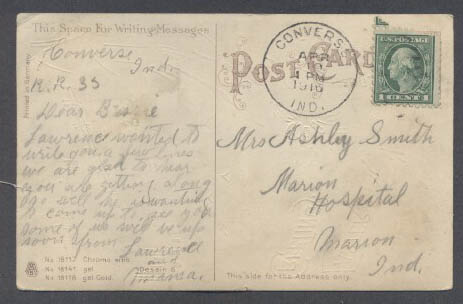 This Space For Writing Messages
Converse
Ind.
R.R. 35
Dear Bessie
Lawrence wanted to
write you a few lines
we are glad to hear
you are getting along
so well he is wanting
to come up to see you
some of us will be up
soon from Lawrence
and
Printed in Germany
No. 18117. Chromo
No. 18141 gel.
No. 18118 gel. Gold.
Dessin 6
POST CARD
CONVERSE
APR
10
4 PM
1916
IND.
U.S. POSTAGE
1 CENT 1
Mrs Ashley Smith
Marion
Hospital
Marion
Ind.
This side for the Address only.